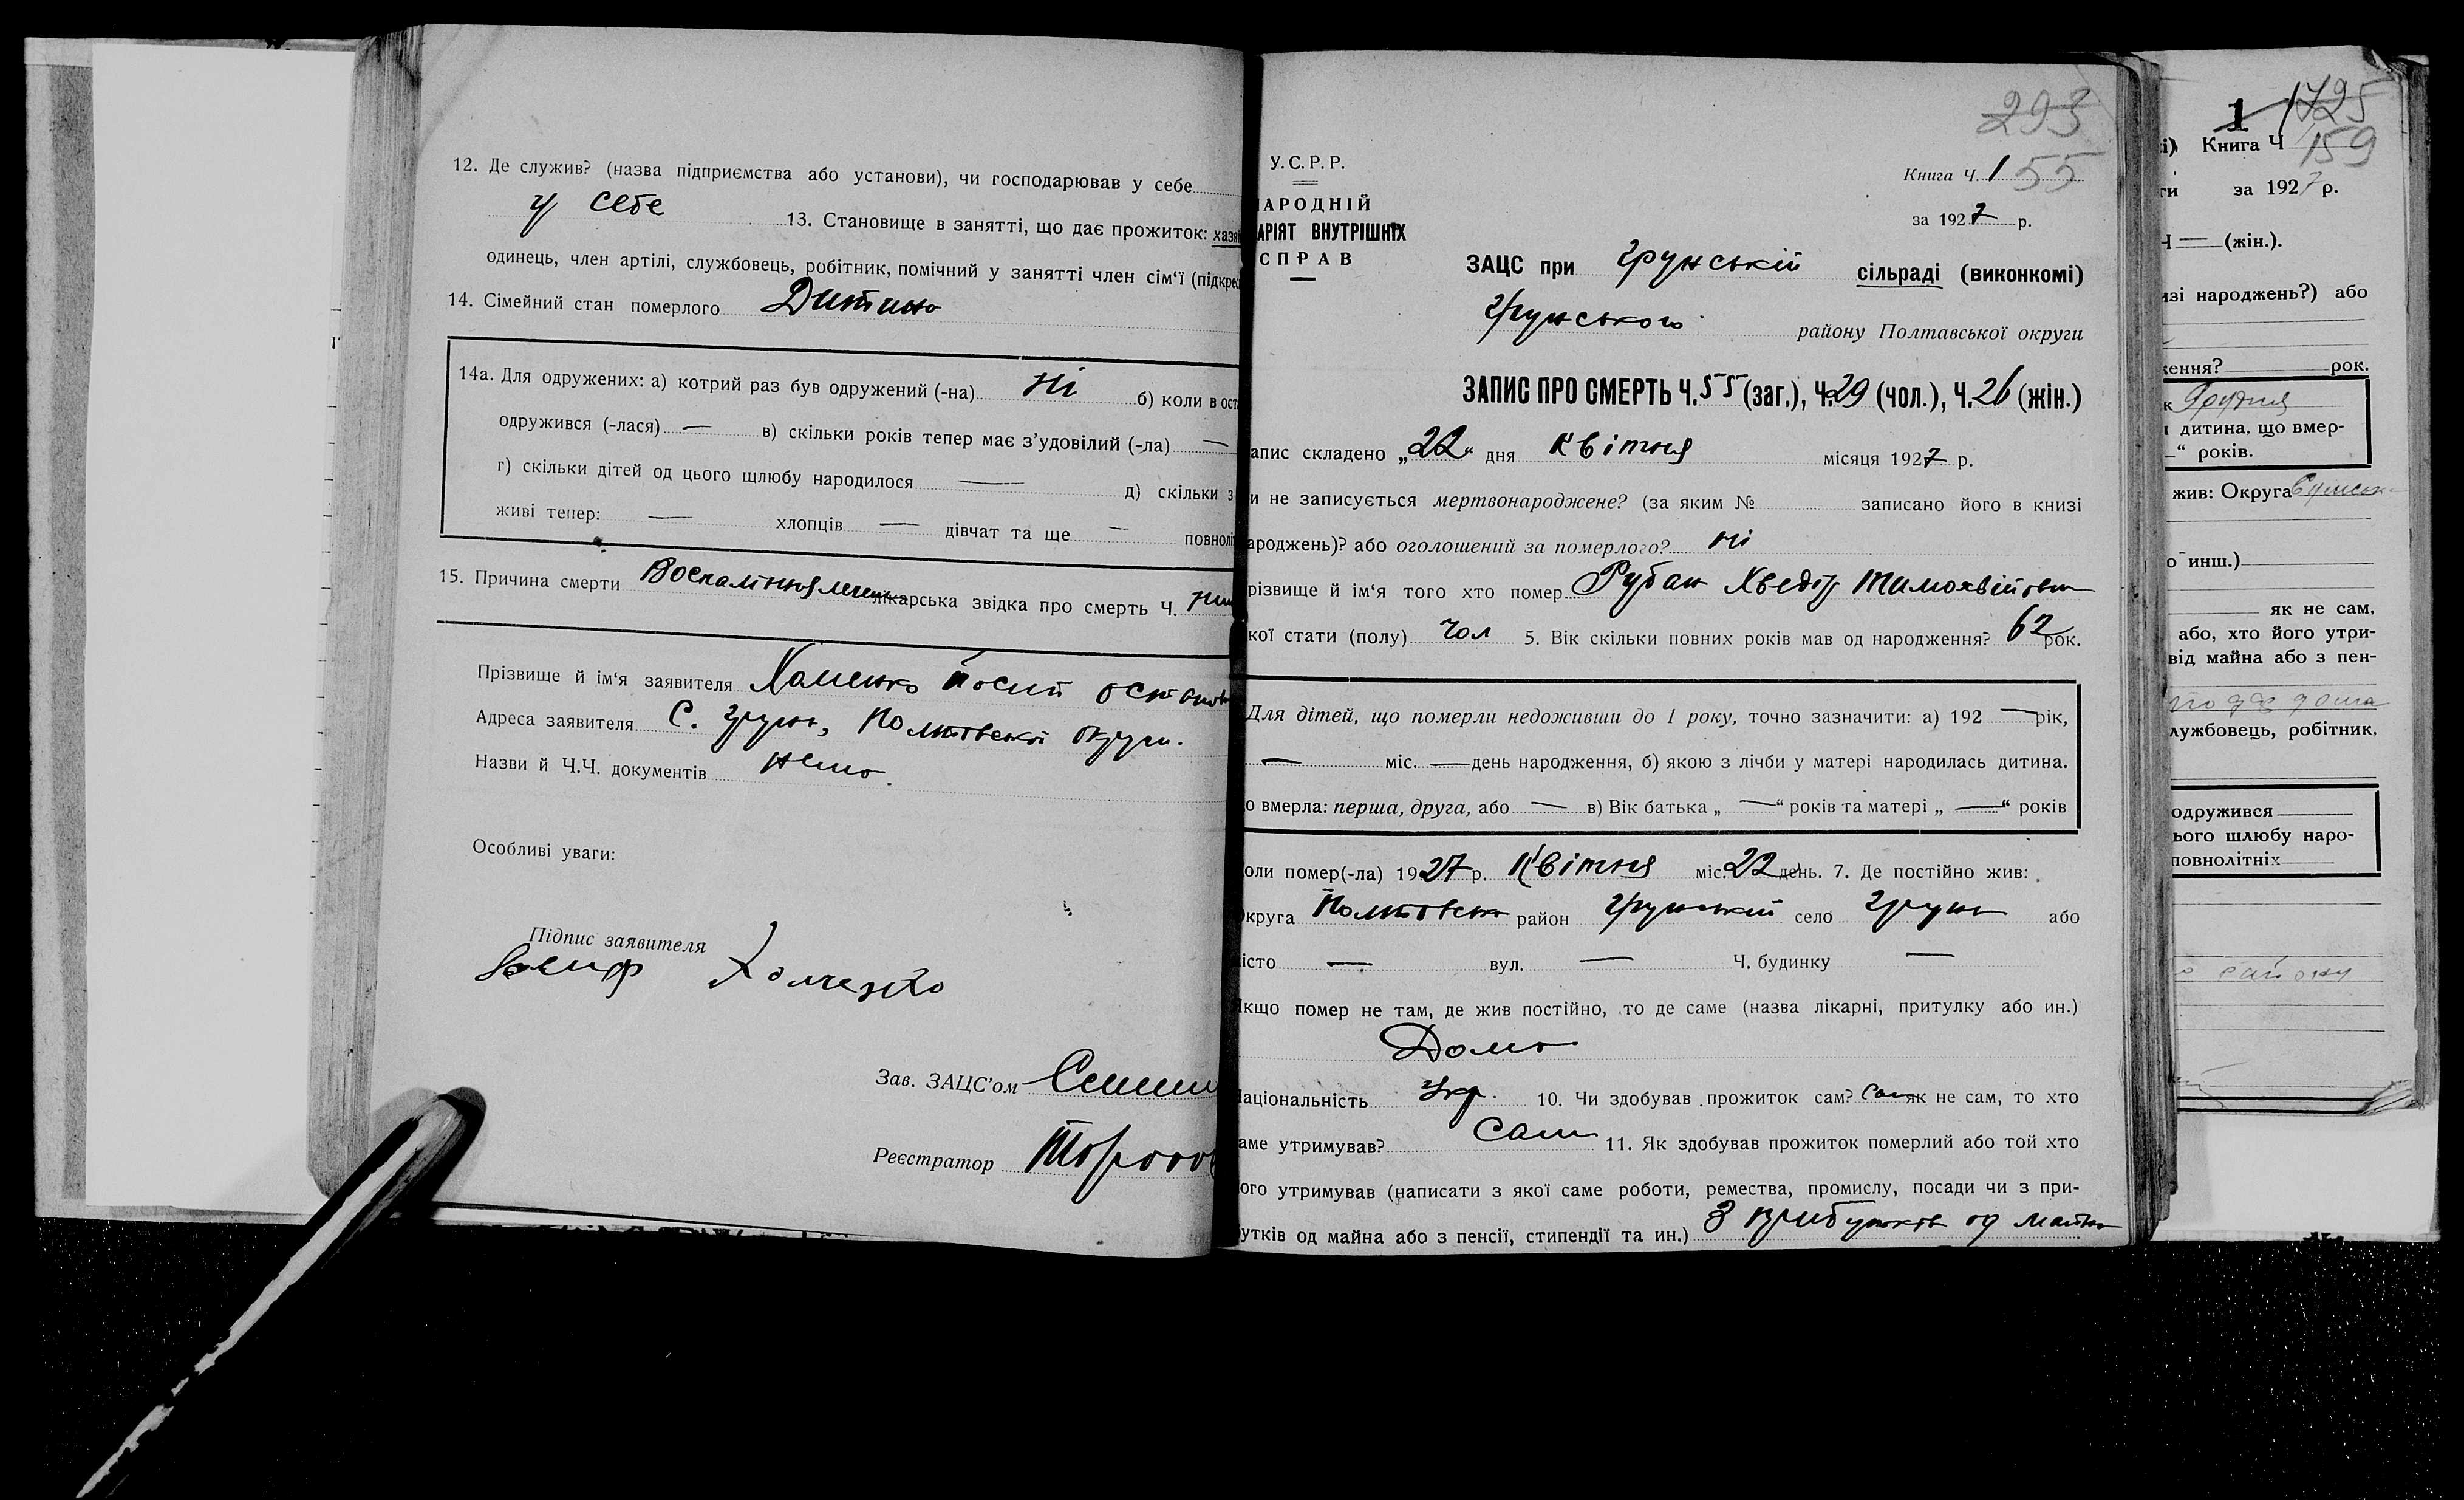 12. Де служив? (назва підприємства або установи), чи господарював у себе
у себе 13. Становище в занятті, що дає прожиток: хазя
одинець, член артілі, службовець, робітник, помічний у занятті член сім'ї (підкрес
14. Сімейний стан померлого Дитина
14а. Для одружених: а) котрий раз був одружений (-на) Ні б) коли в ост
одружився (-лася) — в) скільки років тепер має з'удовілий (-ла) —
г) скільки дітей од цього шлюбу народилося — д) скільки з
живі тепер: — хлопців — дівчат та ще — повноліт
15. Причина смерти Воспаління лікарська звідка про смерть Ч.
Прізвище й ім'я заявителя Хоменко Йосип
Адреса заявителя С. Грунь, Полтавської округи.
Назви й Ч.Ч. документів нема.
Особливі уваги:
Підпис заявителя
Хоменко
Зав. ЗАЦС'ом
Реєстратор
293
У.С.Р.Р.
АРОДНІЙ
АРІЯТ ВНУТРІШНІХ
СПРАВ
Книга Ч. 1 55
за 1927 р.
ЗАЦС при Грунській сільраді (виконкомі)
Грунського району Полтавської округи
ЗАПИС ПРО СМЕРТЬ Ч. 55 (заг.), Ч. 29 (чол.), Ч. 26 (жін.)
апис складено „22“ дня Квітня місяця 1927 р.
и не записується мертвонароджене? (за яким № записано його в книзі
ароджень)? або оголошений за померлого? Ні
різвище й ім'я того хто помер Рубан Хведір Тимохвійович
кої стати (полу) чол 5. Вік скільки повних років мав од народження? 62 рок.
Для дітей, що померли недоживши до 1 року, точно зазначити: а) 192 — рік,
— міс. — день народження, б) якою з лічби у матері народилась дитина.
о вмерла: перша, друга, або — в) Вік батька „ — “ років та матері „ — “ років
оли помер(-ла) 1927 р. Квітня міс. 22 день. 7. Де постійно жив:
круга Полтавськ район Грунський село Грунь або
істо — вул. — Ч. будинку —
кщо помер не там, де жив постійно, то де саме (назва лікарні, притулку або ин.)
Дома
аціональність Укр. 10. Чи здобував прожиток сам? Сам як не сам, то хто
аме утримував? Сам 11. Як здобував прожиток померлий або той хто
ого утримував (написати з якої саме роботи, ремества, промислу, посади чи з при-
утків од майна або з пенсії, стипендії та ин.) З прибутків од майна
1 1725
і) Книга Ч 159
ги за 1927 р.
Ч — (жін.).
изі народжень?) або
ження? рок.
к Грудня
и дитина, що вмер-
“ років.
жив: Округа Сумськ
о инш.)
як не сам,
або, хто його утри-
від майна або з пен-
лужбовець, робітник,
одружився
ього шлюбу наро-
повнолітніх
району